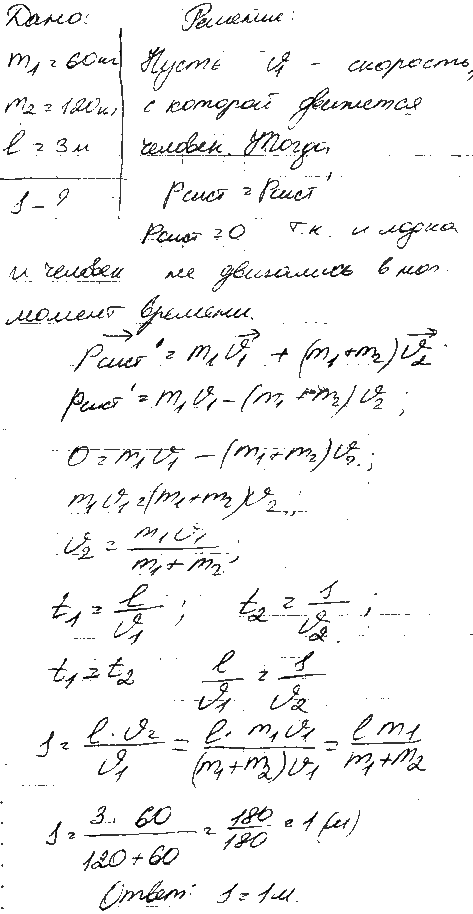 Дано: Решение:
m1 = 60кг Пусть υ1 - скорость,
m2 = 120кг с которой движется
l = 3м человек. Тогда
s - ? Pсист = Pсист'
Pсист = 0 т.к. и лодка
и человек не двигались в нач.
момент времени.
Pсист' = m1υ1 + (m1+m2)υ2.
Pсист' = m1υ1 - (m1+m2)υ2;
0 = m1υ1 - (m1+m2)υ2;
m1υ1 = (m1+m2)υ2;
υ2 = m1υ1 / (m1+m2);
t1 = l/υ1; t2 = s/υ2;
t1 = t2 l/υ1 = s/υ2
s = l·υ2/υ1 = l·m1υ1/((m1+m2)υ1) = lm1/(m1+m2)
s = 3·60/(120+60) = 180/180 = 1 (м)
Ответ: s = 1м.